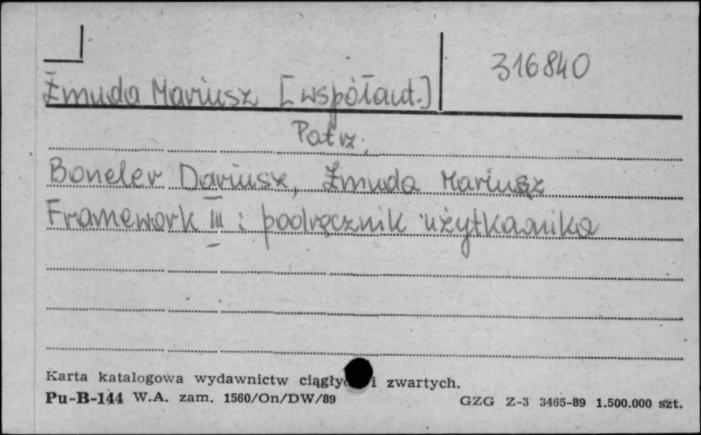 316840
Żmuda Mariusz [współaut.]
Patrz:
Boneler Dariusz, Żmuda Mariusz
Framework III : podręcznik użytkownika
Karta katalogowa wydawnictw ciągłych i zwartych.
Pu-B-144 W.A. zam. 1560/On/DW/89
GZG Z-3 3465-89 1.500.000 szt.